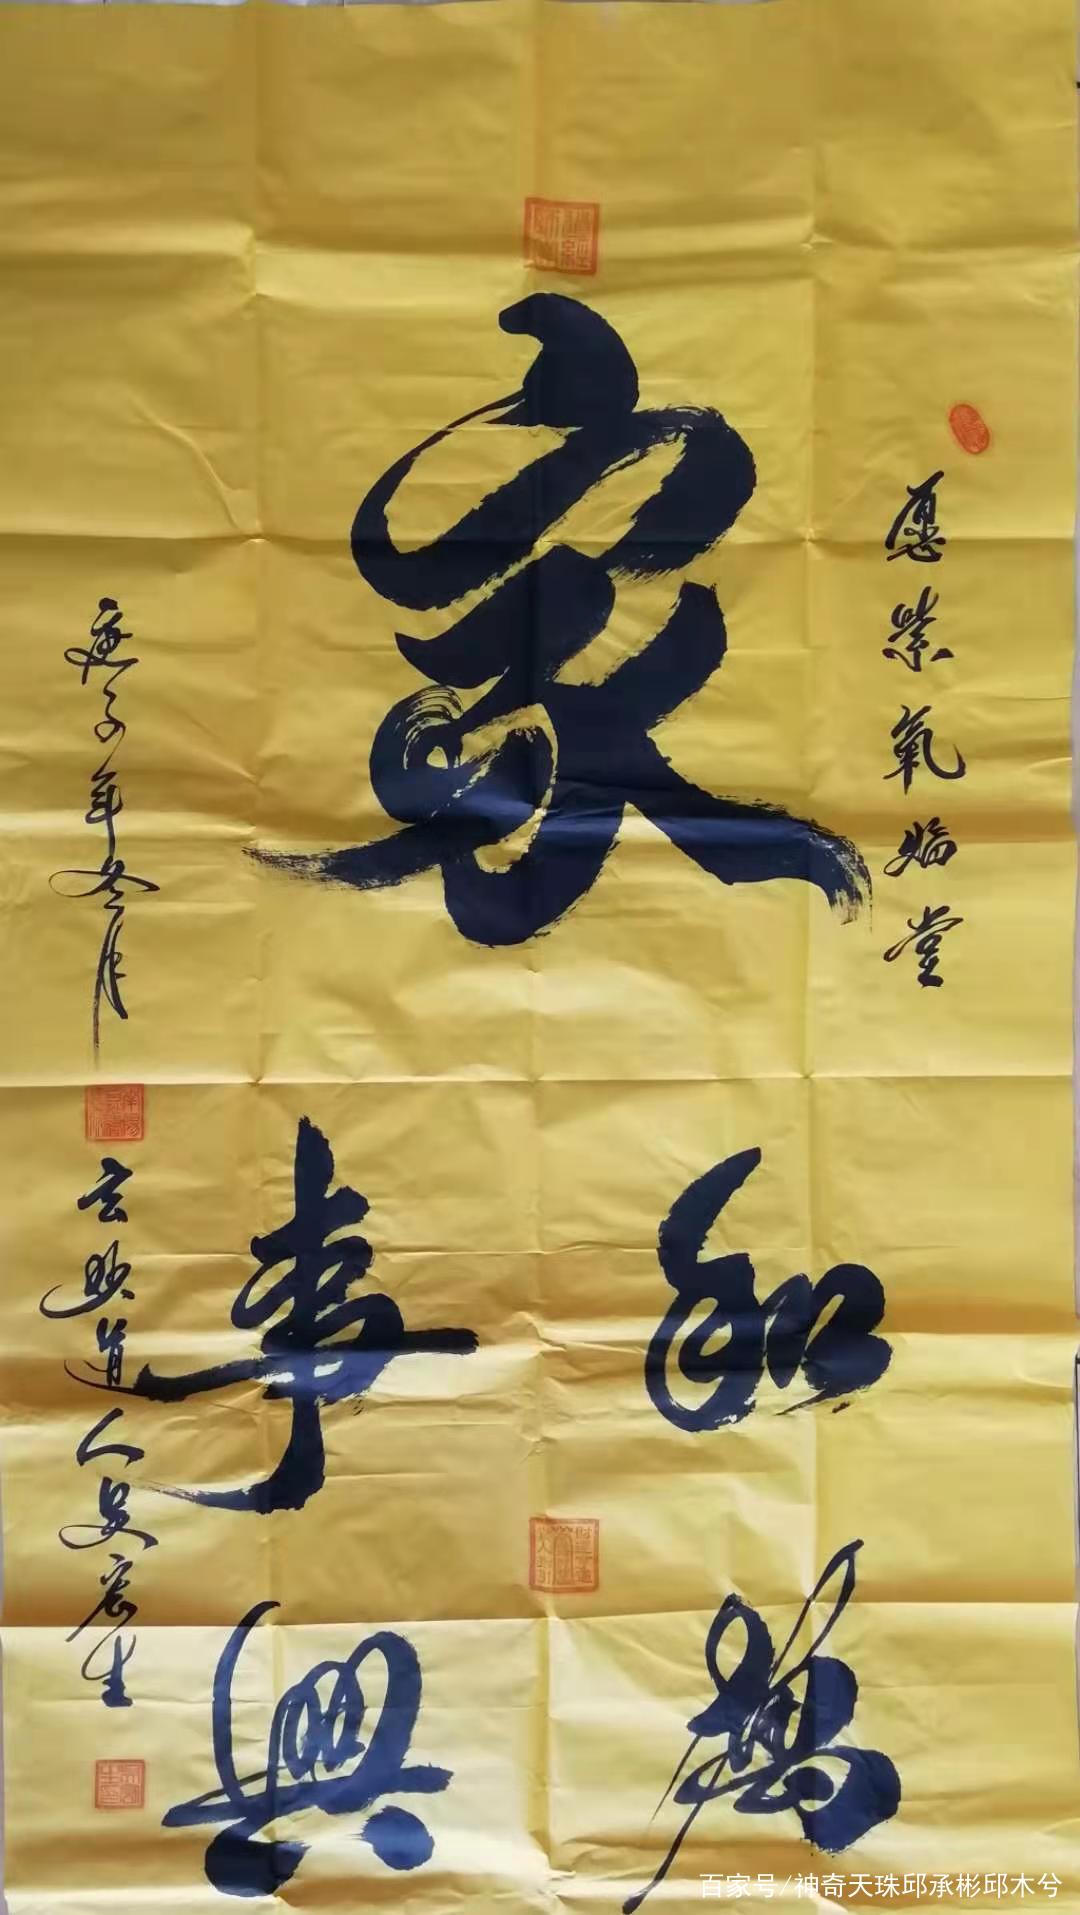 愿紫氣臨堂
家
和萬
事興
庚子年冬月
玄妙道人史宏生
百家号/神奇天珠邱承彬邱木兮